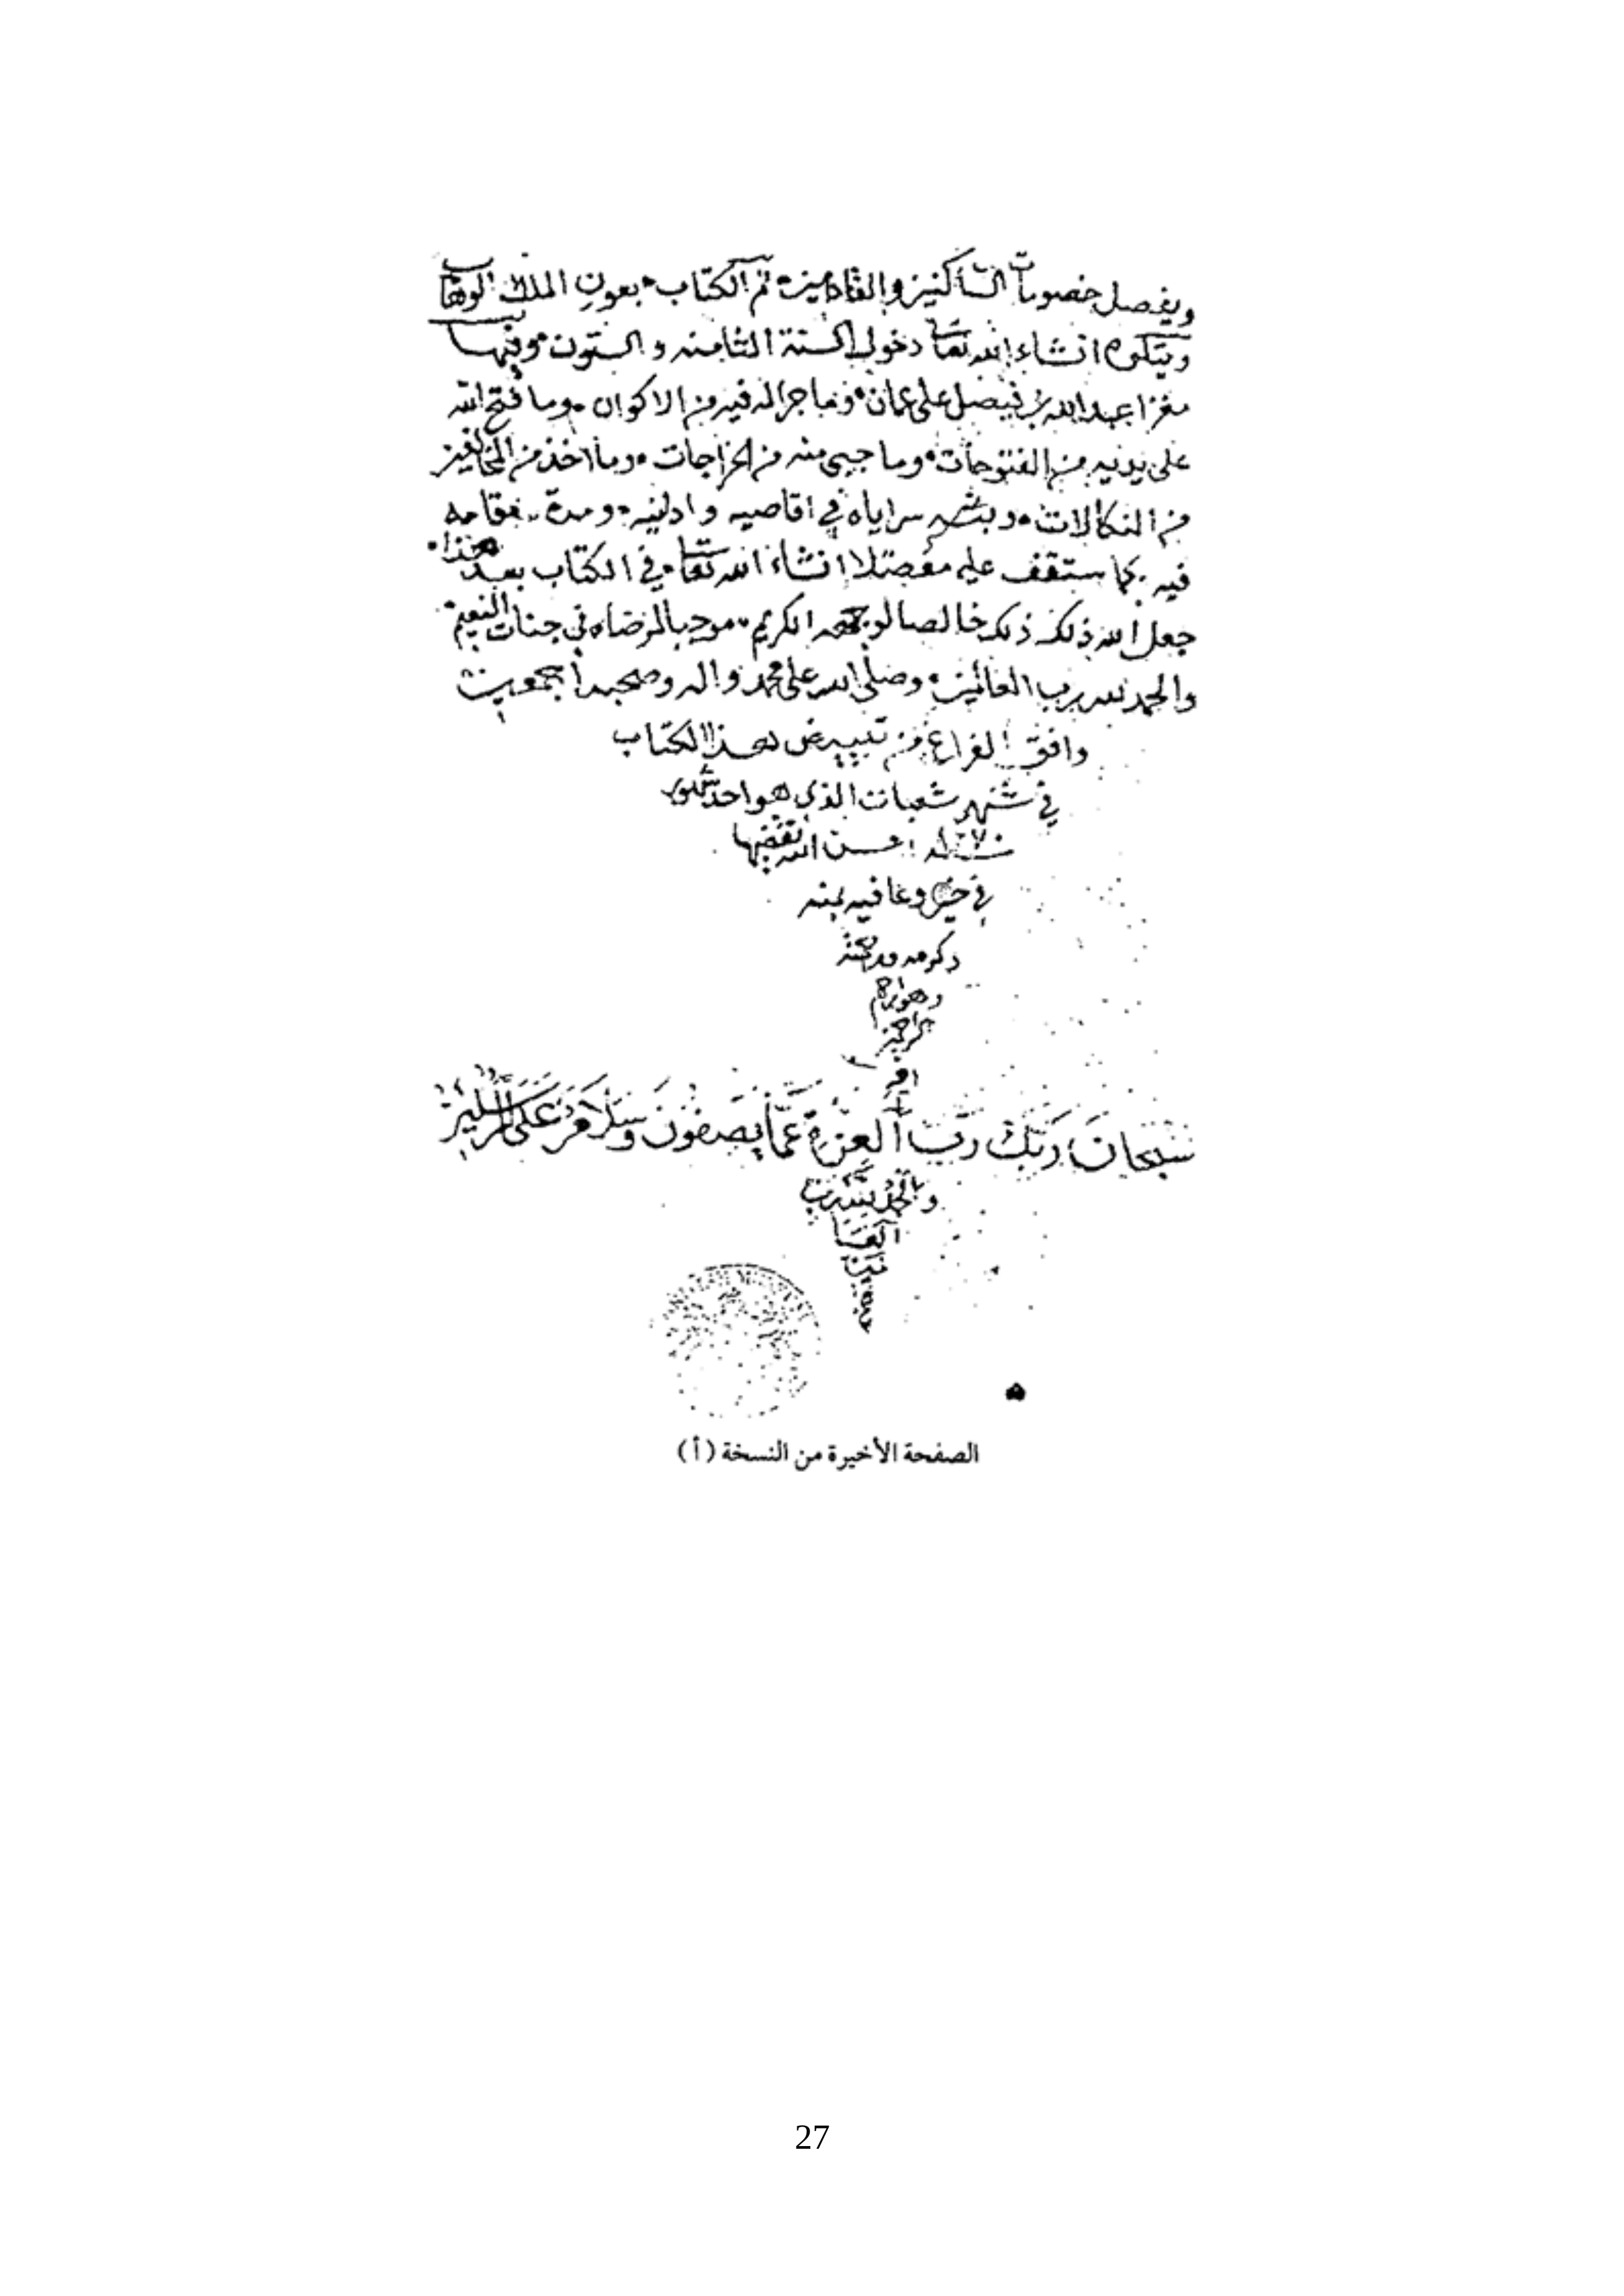 ويفصل خصومات الساكنين والقادمين تم الكتاب بعون الملك الوهاب
ويتلوه انشاء الله تعا دخول السنة الثامنه والستون وفيها
مغزا عبدالله بن فيصل على عمان وما جرا له فيه من الاكوان وما فتح الله
على يديه من الفتوحات وما جبي منه من الخراجات وما اخذ من المخالفين
من النكالات وبثه سراياه في اقاصيه وادانيه ومدة مقامه
فيه كما ستقف عليه مفصلا انشاء الله تعا في الكتاب بعد هذا
جعل الله ذلك ذلك خالصا لوجهه الكريم موجبا لرضاه في جنات النعيم
والحمد لله رب العالمين وصلى الله على محمد واله وصحبه اجمعين
وافق الفراغ من تبييض هذا الكتاب
في شهر شعبان الذي هو احد شهور
سنة ١٢٧٠ احسن الله تقضيها
في خير وعافيه بمنه
وكرمه ورحمته
وهو ارحم
الراحمين
سبحان ربك رب العزة عما يصفون وسلام على المرسلين
والحمد لله رب
العا
لمين
الصفحة الأخيرة من النسخة (أ)
27